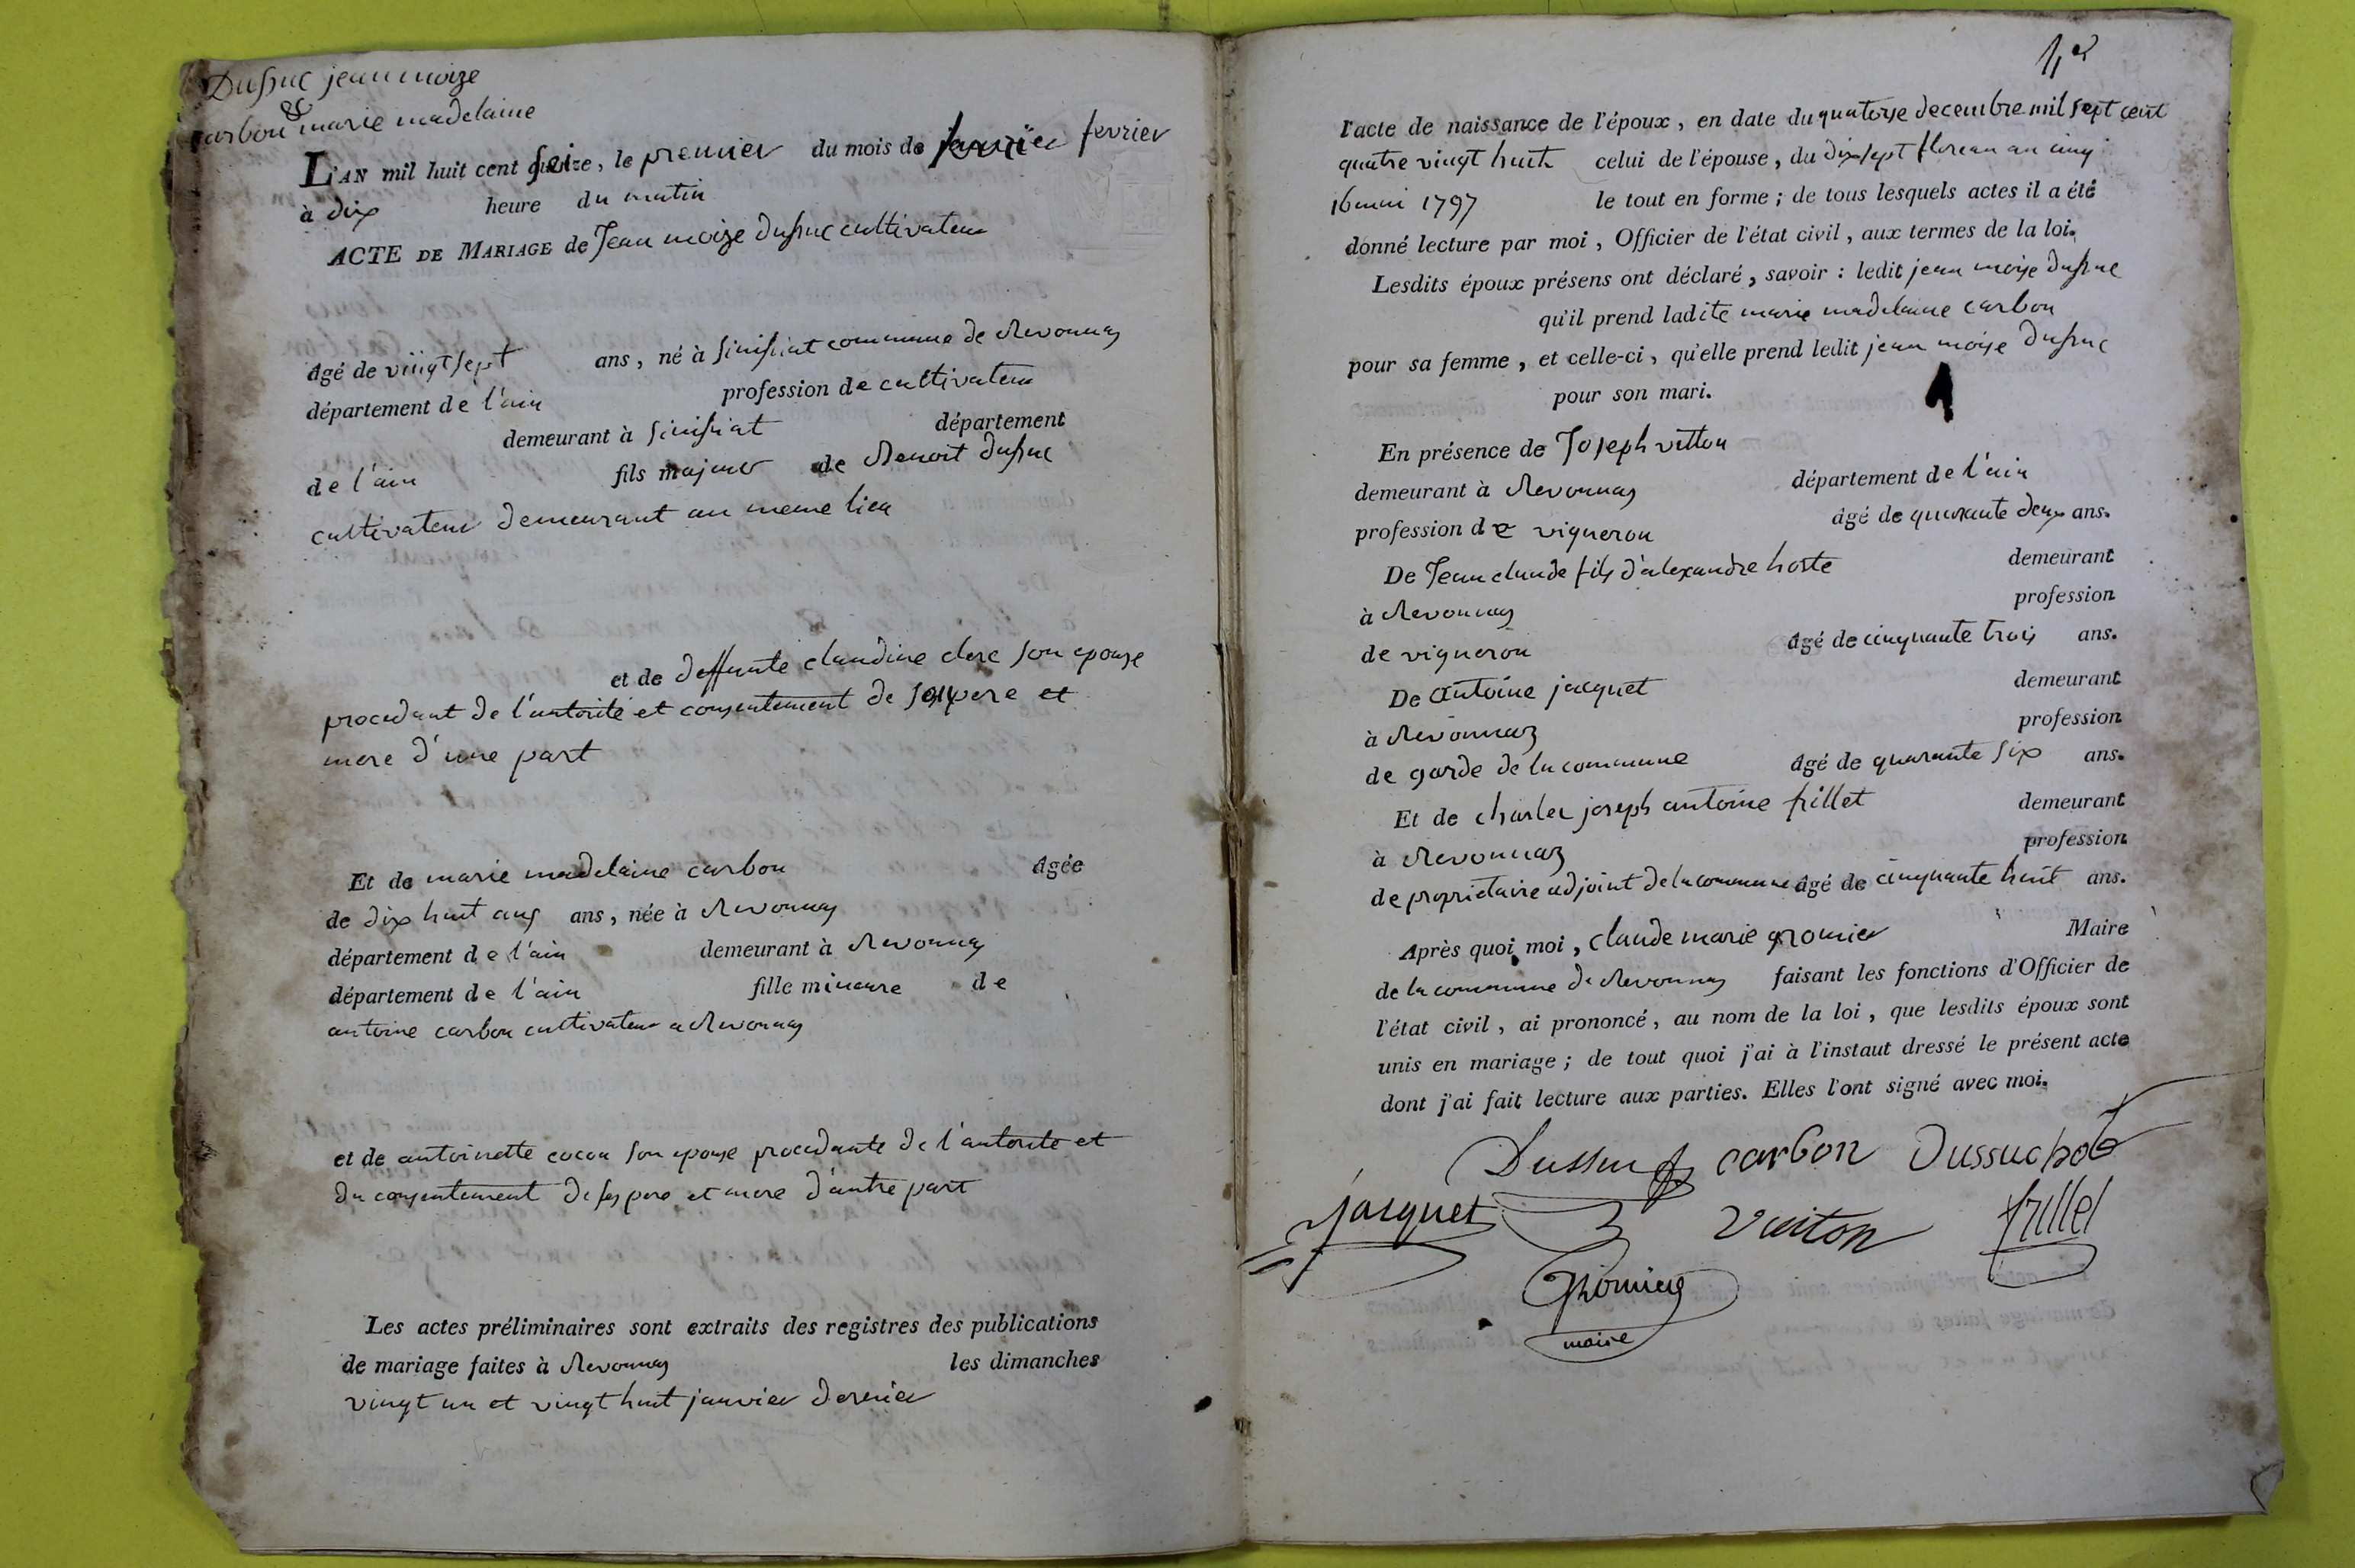 Dussuc jean moize
&
carbon marie madelaine
L'AN mil huit cent seize, le premier du mois de fevrier
à dix heure du matin
ACTE DE MARIAGE de Jean moize dussuc cultivateur
âgé de viingt sept ans, né à Sinissiat commune de Revonnas
département de l'ain profession de cultivateur
demeurant à Sinissiat département
de l'ain fils majeur de Benoit dussuc
cultivateur demeurant au meme lieu
et de deffunte claudine clerc son epouse
procedant de l'autorité et consentement de son pere et
mere d'une part
Et de marie madelaine carbon âgée
de dix huit ans ans, née à Revonnas
département de l'ain demeurant à Revonnas
département de l'ain fille mineure de
antoine carbon cultivateur a Revonnas
et de antoinette cocon son epouse procedante de l'autorité et
du consentement de ses pere et mere d'autre part
Les actes préliminaires sont extraits des registres des publications
de mariage faites à Revonnas les dimanches
vingt un et vingt huit janvier dernier
l'acte de naissance de l'époux, en date du quatorze decembre mil sept cent
quatre vingt huit celui de l'épouse, du dix sept floreau an cinq
16 mai 1797 le tout en forme; de tous lesquels actes il a été
donné lecture par moi, Officier de l'état civil, aux termes de la loi.
Lesdits époux présens ont déclaré, savoir : ledit jean moise dussuc
qu'il prend ladite marie madelaine carbon
pour sa femme, et celle-ci, qu'elle prend ledit jean moise dussuc
pour son mari.
En présence de Joseph vitton
demeurant à Revonnas département de l'ain
profession de vigneron âgé de quarante deux ans.
De Jean claude fils d'alexandre hoste demeurant
à Revonnas profession
de vigneron âgé de cinquante trois ans.
De antoine jacquet demeurant
à Revonnaz profession
de garde de la commune âgé de quarante six ans.
Et de charles joseph antoine frillet demeurant
à Revonnaz profession
de proprietaire adjoint de la commune âgé de cinquante huit ans.
Après quoi moi, claude marie gromier Maire
de la commune de Revonnas faisant les fonctions d'Officier de
l'état civil, ai prononcé, au nom de la loi, que lesdits époux sont
unis en mariage; de tout quoi j'ai à l'instaut dressé le présent acte
dont j'ai fait lecture aux parties. Elles l'ont signé avec moi.
Dussuc carbon Dussuc
jacquet Vuiton frillet
Gromier
maire